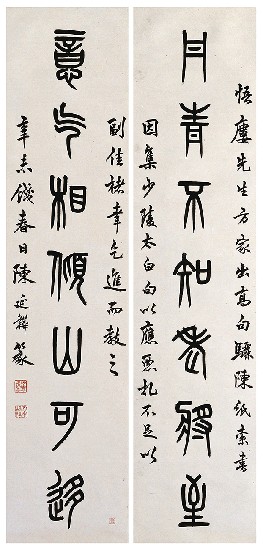 悟廔先生方家出高句驪陳紙索書
丹青不知老將至
因集少陵太白句以應惡札不足以
副佳楮幸乞進而教之
意气相傾山可迻
辛未餞春日陳延韡篆